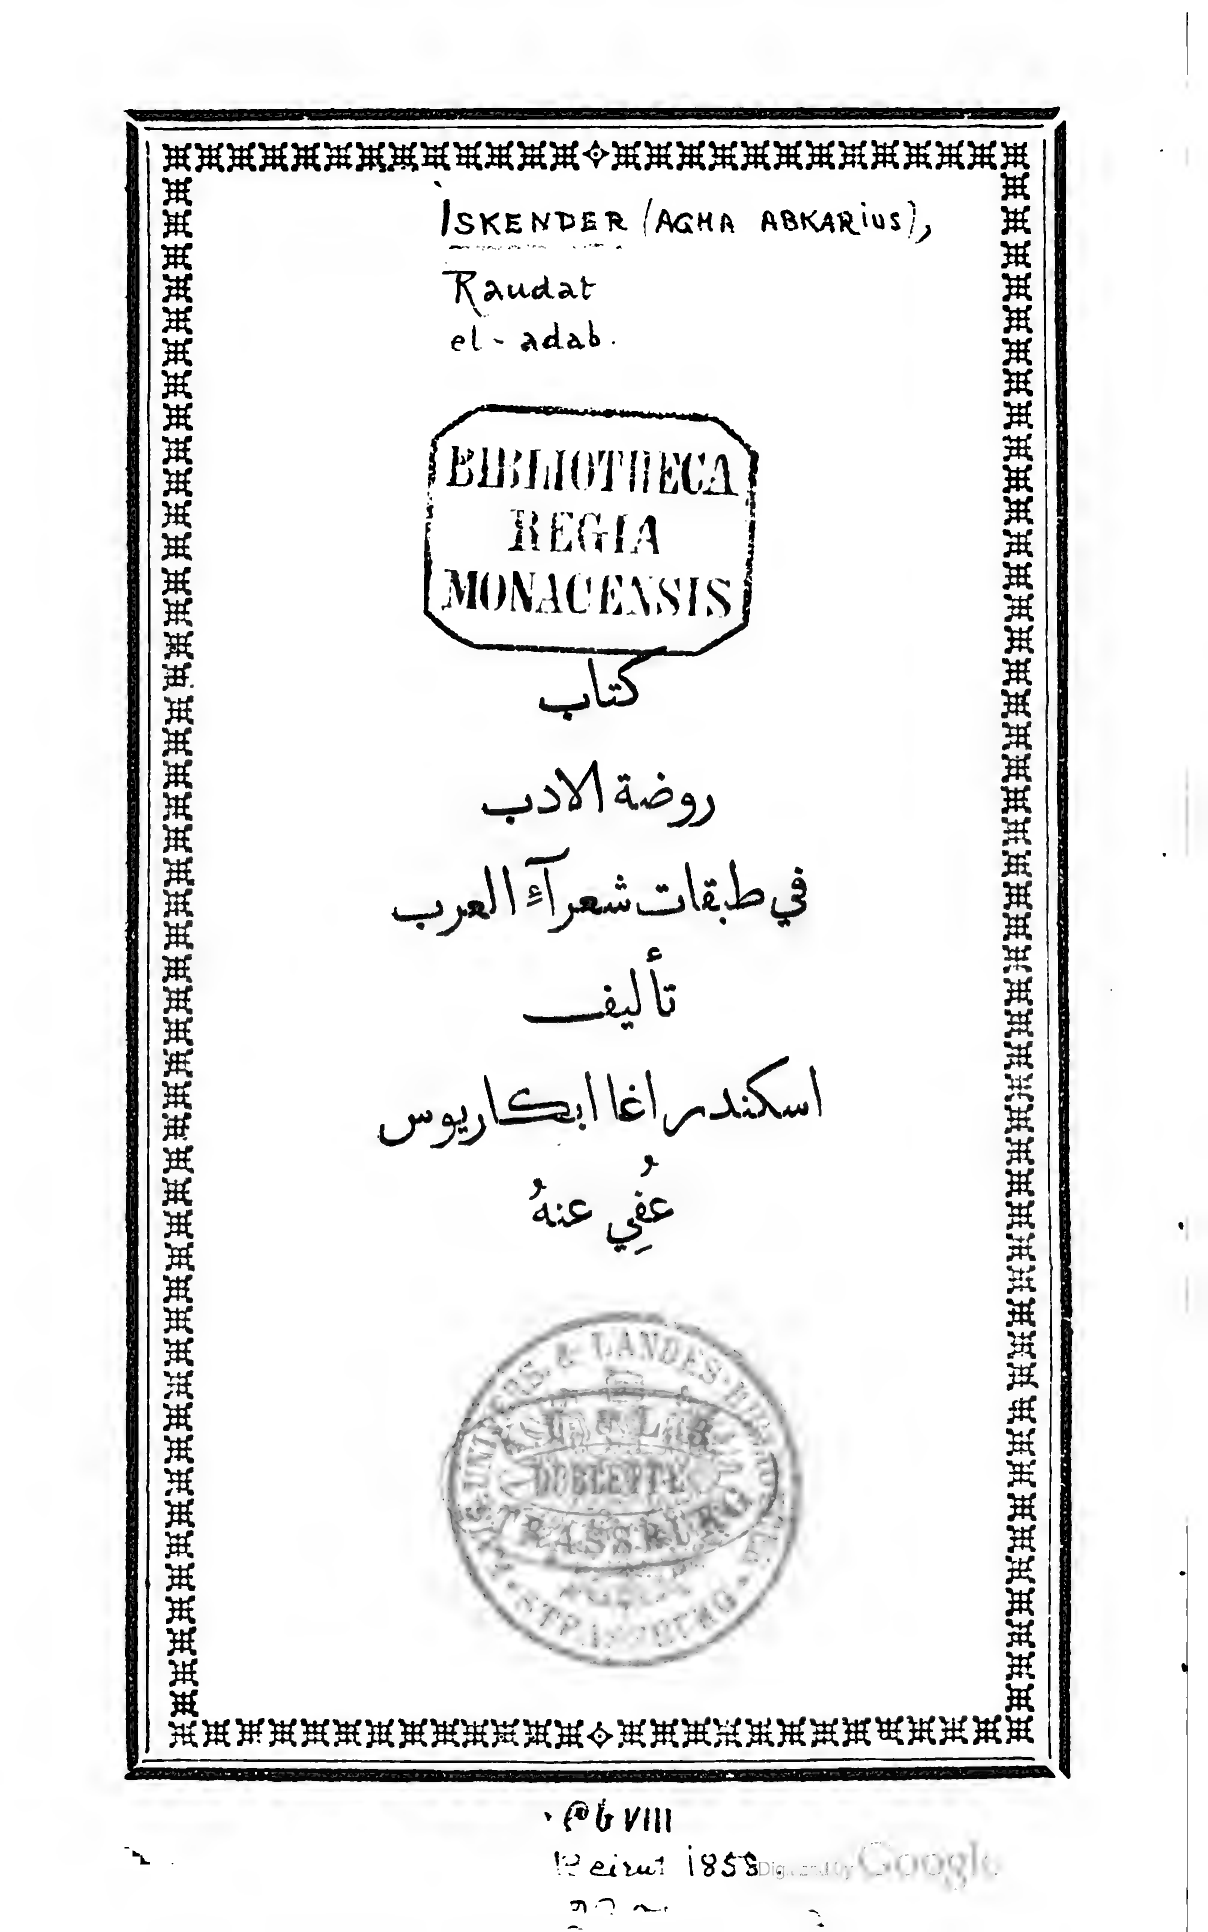 ISKENDER (AGHA ABKARIUS),
Raudat
el-adab.
BIBLIOTHECA
REGIA
MONACENSIS
كتاب
روضة الادب
في طبقات شعرآءِ العرب
تأليف
اسكندر اغا ابكاريوس
عُفِي عنهُ
UNIVERS. & LANDES-
DOUBLETTE
STRASSBURG
STRASSBURG
VIII
Beirut 1858.
Digitized by Google